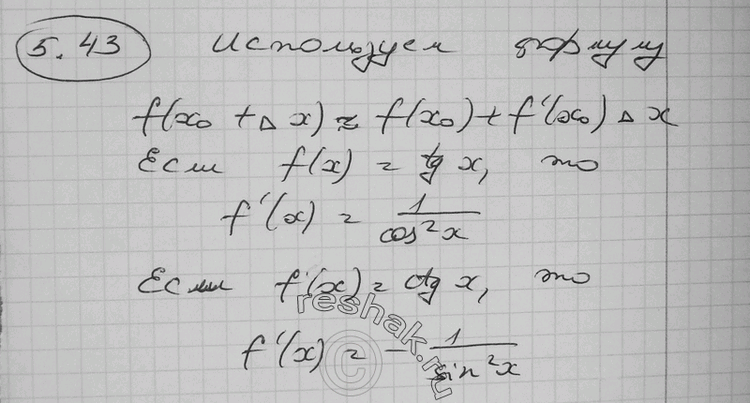 5.43 Используем формулу
f(x₀ + Δx) ≈ f(x₀) + f'(x₀) Δx
Если f(x) = tg x, то
f'(x) = 1/cos²x
Если f(x) = ctg x, то
f'(x) = - 1/sin²x
reshak.ru
©